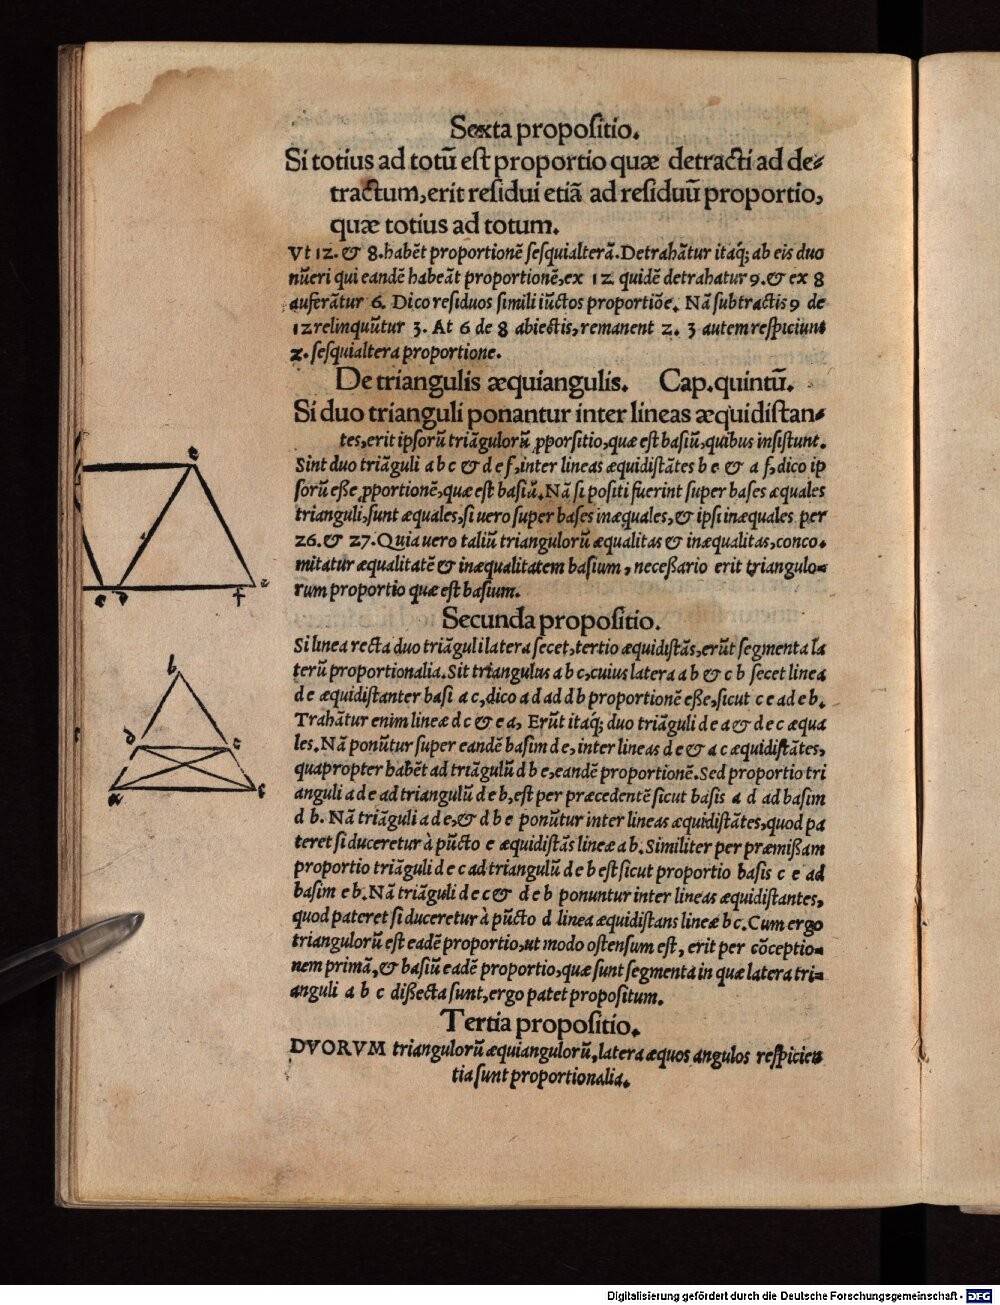 Sexta propositio.
Si totius ad totū est proportio quæ detracti ad de⸗
tractum, erit residui etiā ad residuū proportio,
quæ totius ad totum.
Vt 12. & 8. habēt proportionē sesquialterā. Detrahātur itaq; ab eis duo
nūeri qui eandē habeāt proportionē, ex 12 quidē detrahatur 9. & ex 8
auferātur 6. Dico residuos simili iūctos proportiōe. Nā subtractis 9 de
12 relinquūtur 3. At 6 de 8 abiectis, remanent 2. 3 autem respiciunt
2. sesquialtera proportione.
De triangulis æquiangulis. Cap. quintū.
Si duo trianguli ponantur inter lineas æquidistan⸗
tes, erit ipsorū triāgulorū ꝓporsitio, quæ est basiū, quibus insistunt.
Sint duo triāguli a b c & d e f, inter lineas æquidistātes b e & a f, dico ip
sorū eße ꝓportionē, quæ est basiū. Nā si positi fuerint super bases æquales
trianguli, sunt æquales, si uero super bases inæquales, & ipsi inæquales per
26. & 27. Quia uero taliū triangulorū æqualitas & inæqualitas, conco⸗
mitatur æqualitatē & inæqualitatem basium, neceßario erit triangulo⸗
rum proportio quæ est basium.
Secunda propositio.
Si linea recta duo triāguli latera secet, tertio æquidistās, erūt segmenta la
terū proportionalia. Sit triangulus a b c, cuius latera a b & c b secet linea
d e æquidistanter basi a c, dico a d ad d b proportionē eße, sicut c e ad e b.
Trahātur enim lineæ d c & e a, Erūt itaq; duo triāguli d e a & d e c æqua
les. Nā ponūtur super eandē basim d e, inter lineas d e & a c æquidistātes,
quapropter habēt ad triāgulū d b e, eandē proportionē. Sed proportio tri
anguli a d e ad triangulū d e b, est per præcedentē sicut basis a d ad basim
d b. Nā triāguli a d e, & d b e ponūtur inter lineas æquidistātes, quod pa
teret si duceretur à pūcto e æquidistās lineæ a b. Similiter per præmißam
proportio triāguli d e c ad triangulū d e b est sicut proportio basis c e ad
basim e b. Nā triāguli d e c & d e b ponuntur inter lineas æquidistantes,
quod pateret si duceretur à pūcto d linea æquidistans lineæ b c. Cum ergo
triangulorū est eadē proportio, ut modo ostensum est, erit per cōceptio⸗
nem primā, & basiū eadē proportio, quæ sunt segmenta in quæ latera tri⸗
anguli a b c dißecta sunt, ergo patet propositum.
Tertia propositio.
DVORVM triangulorū æquiangulorū, latera æquos angulos respicien
tia sunt proportionalia.
e
c d f
b
d e
a c
Digitalisierung gefördert durch die Deutsche Forschungsgemeinschaft - DFG